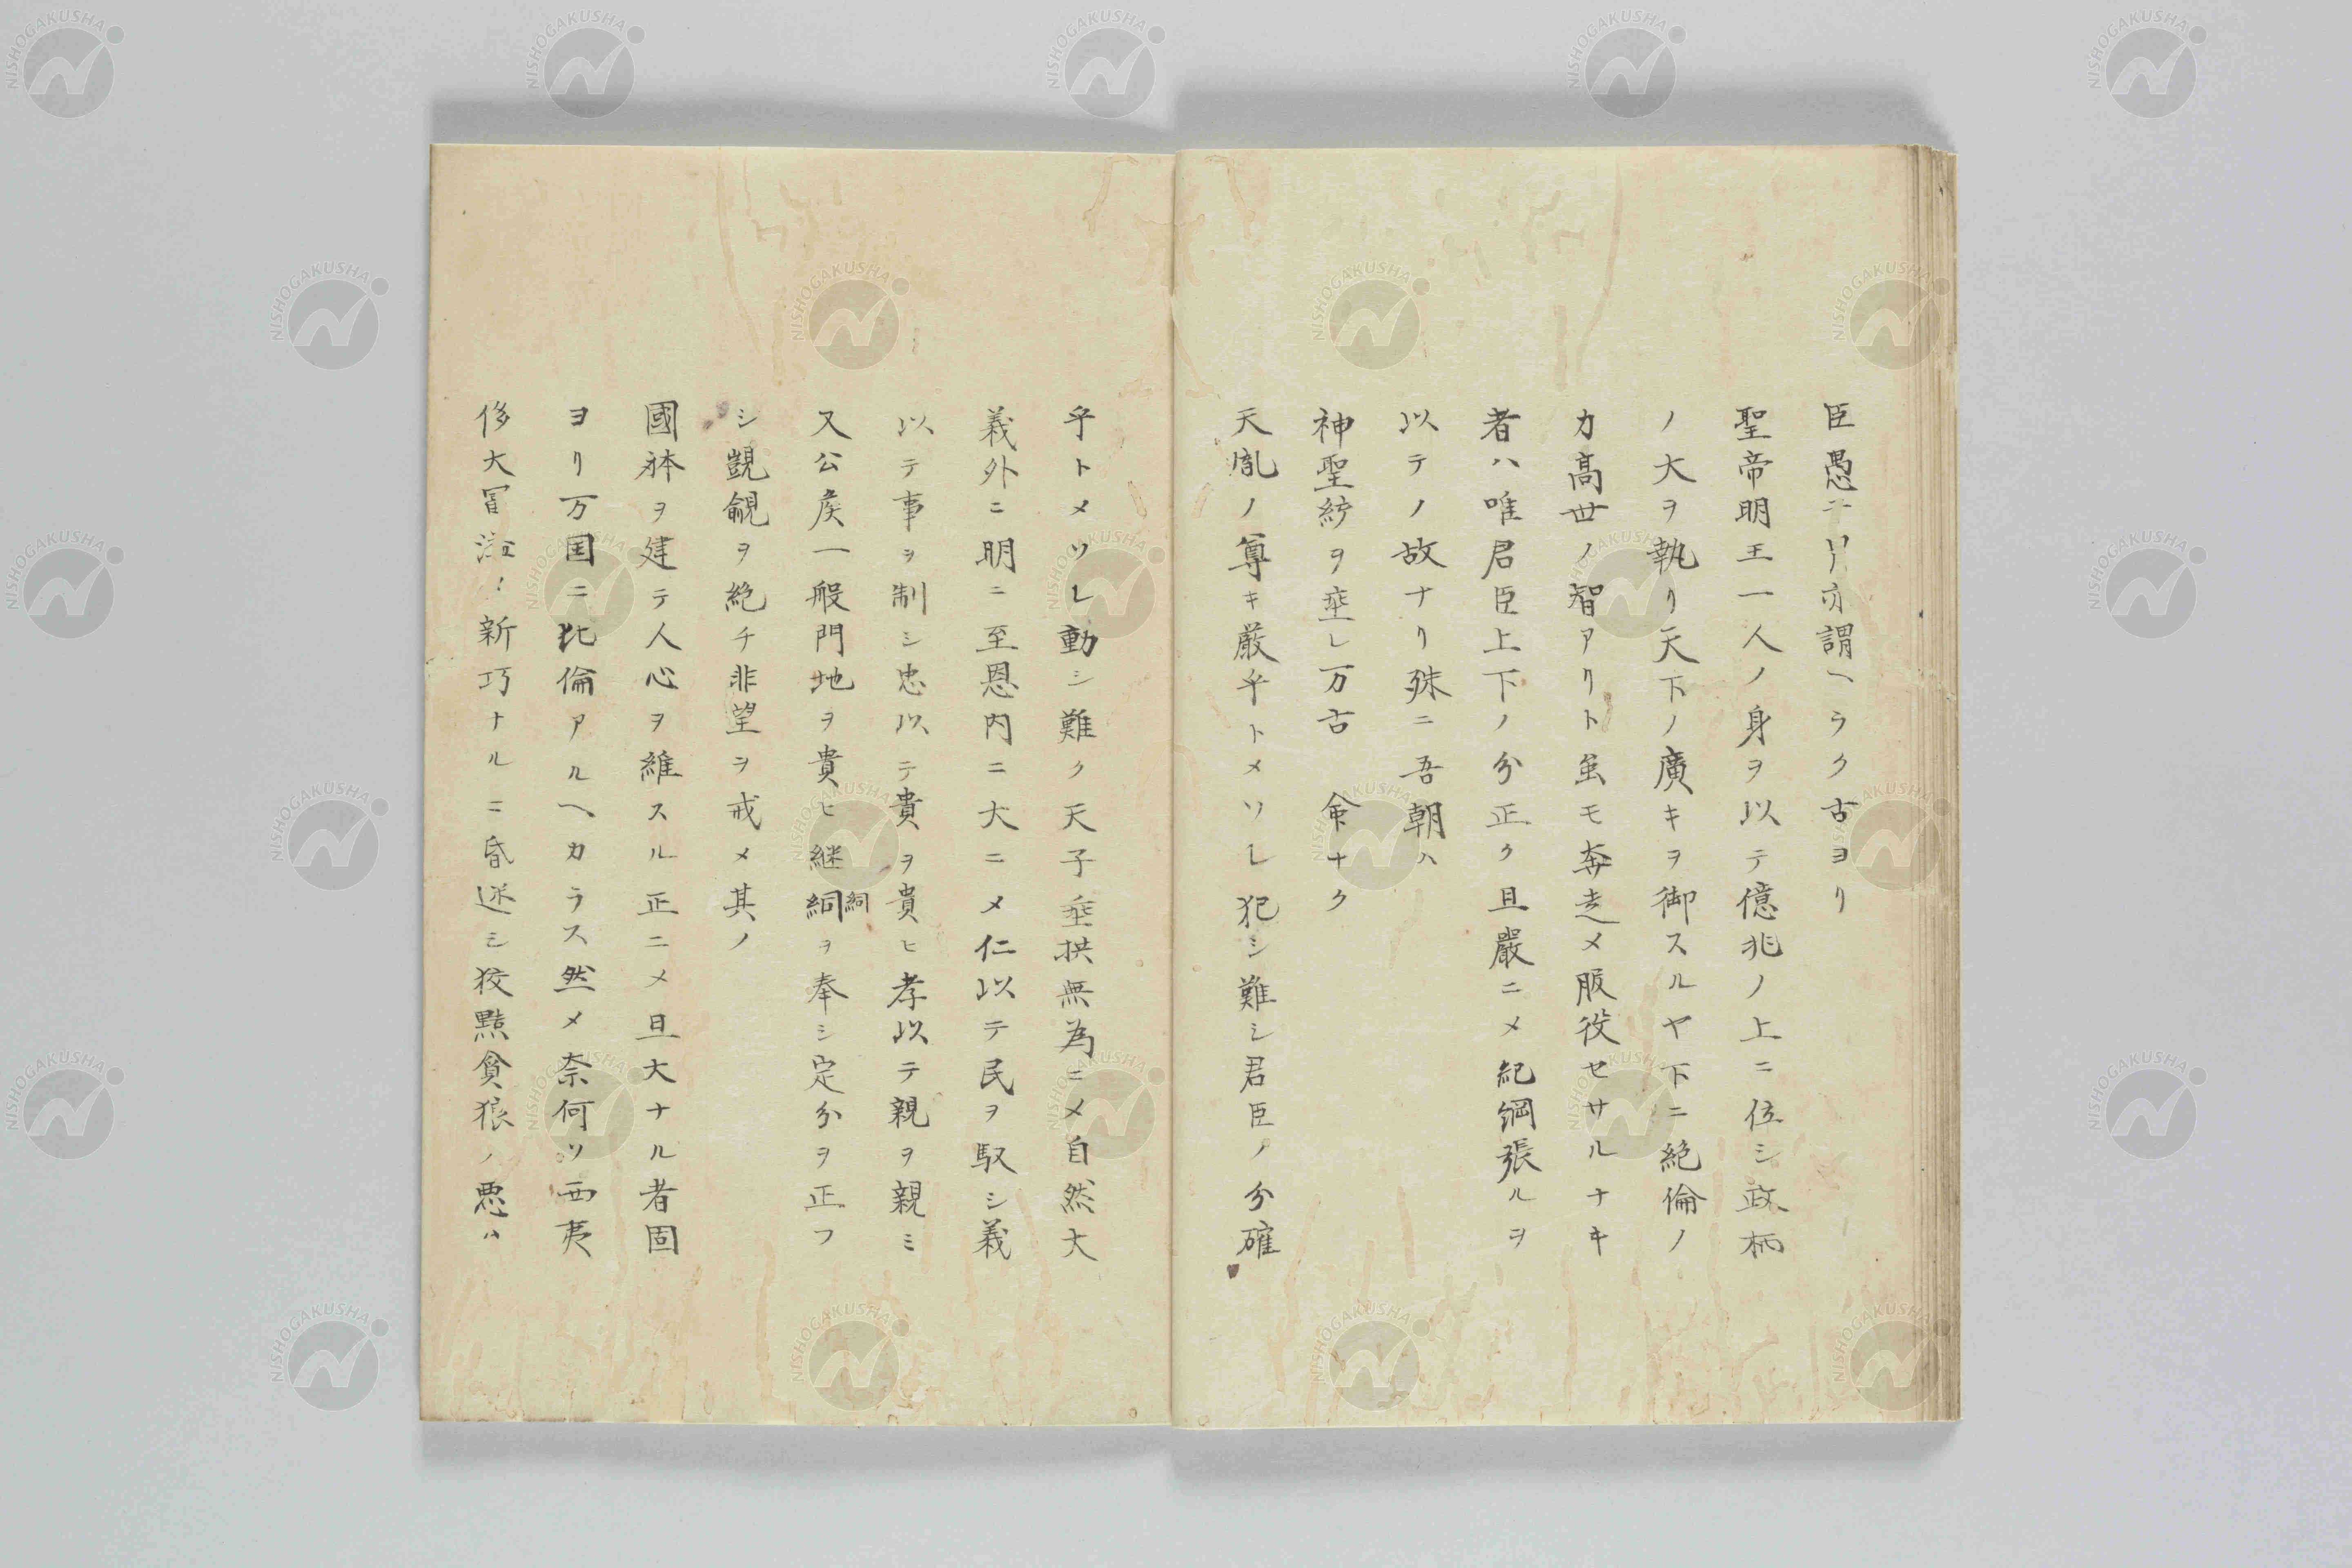 臣愚ニ亦謂ヘラク古ヨリ
聖帝明王一人ノ身ヲ以テ億兆ノ上ニ位シ政柄
ノ大ヲ執リ天下ノ廣キヲ御スルヤ下ニ絶倫ノ
力高世ノ智アリト虽モ奔走メ服役セサルナキ
者ハ唯君臣上下ノ分正ク且嚴ニメ紀綱張ルヲ
以テノ故ナリ殊ニ吾朝ハ
神聖統ヲ垂レ万古 ナク
天胤ノ尊キ厳乎トメソレ犯シ難シ君臣ノ分確
乎トメソレ動シ難ク天子垂拱無為ニメ自然大
義外ニ明ニ至恩内ニ大ニメ仁以テ民ヲ馭シ義
以テ事ヲ制シ忠以テ貴ヲ貴ヒ孝以テ親ヲ親ミ
又公侯一般門地ヲ貴ヒ継嗣ヲ奉シ定分ヲ正フ
シ覬覦ヲ絶チ非望ヲ戒メ其ノ
國体ヲ建テ人心ヲ維スル正ニメ且大ナル者固
ヨリ万国ニ比倫アルヘカラス然メ奈何ソ西夷
侈大冒 新巧ナルニ昏迷シ狡黠貪狼ノ悪ハ
NISHOGAKUSHA